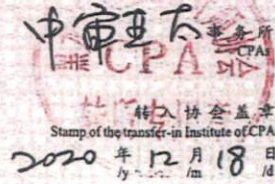 中审亚太 事务所
CPAs
CPA
转入协会盖章
Stamp of the transfer-in Institute of CPA
2020 年 12 月 18 日
/y /m /d